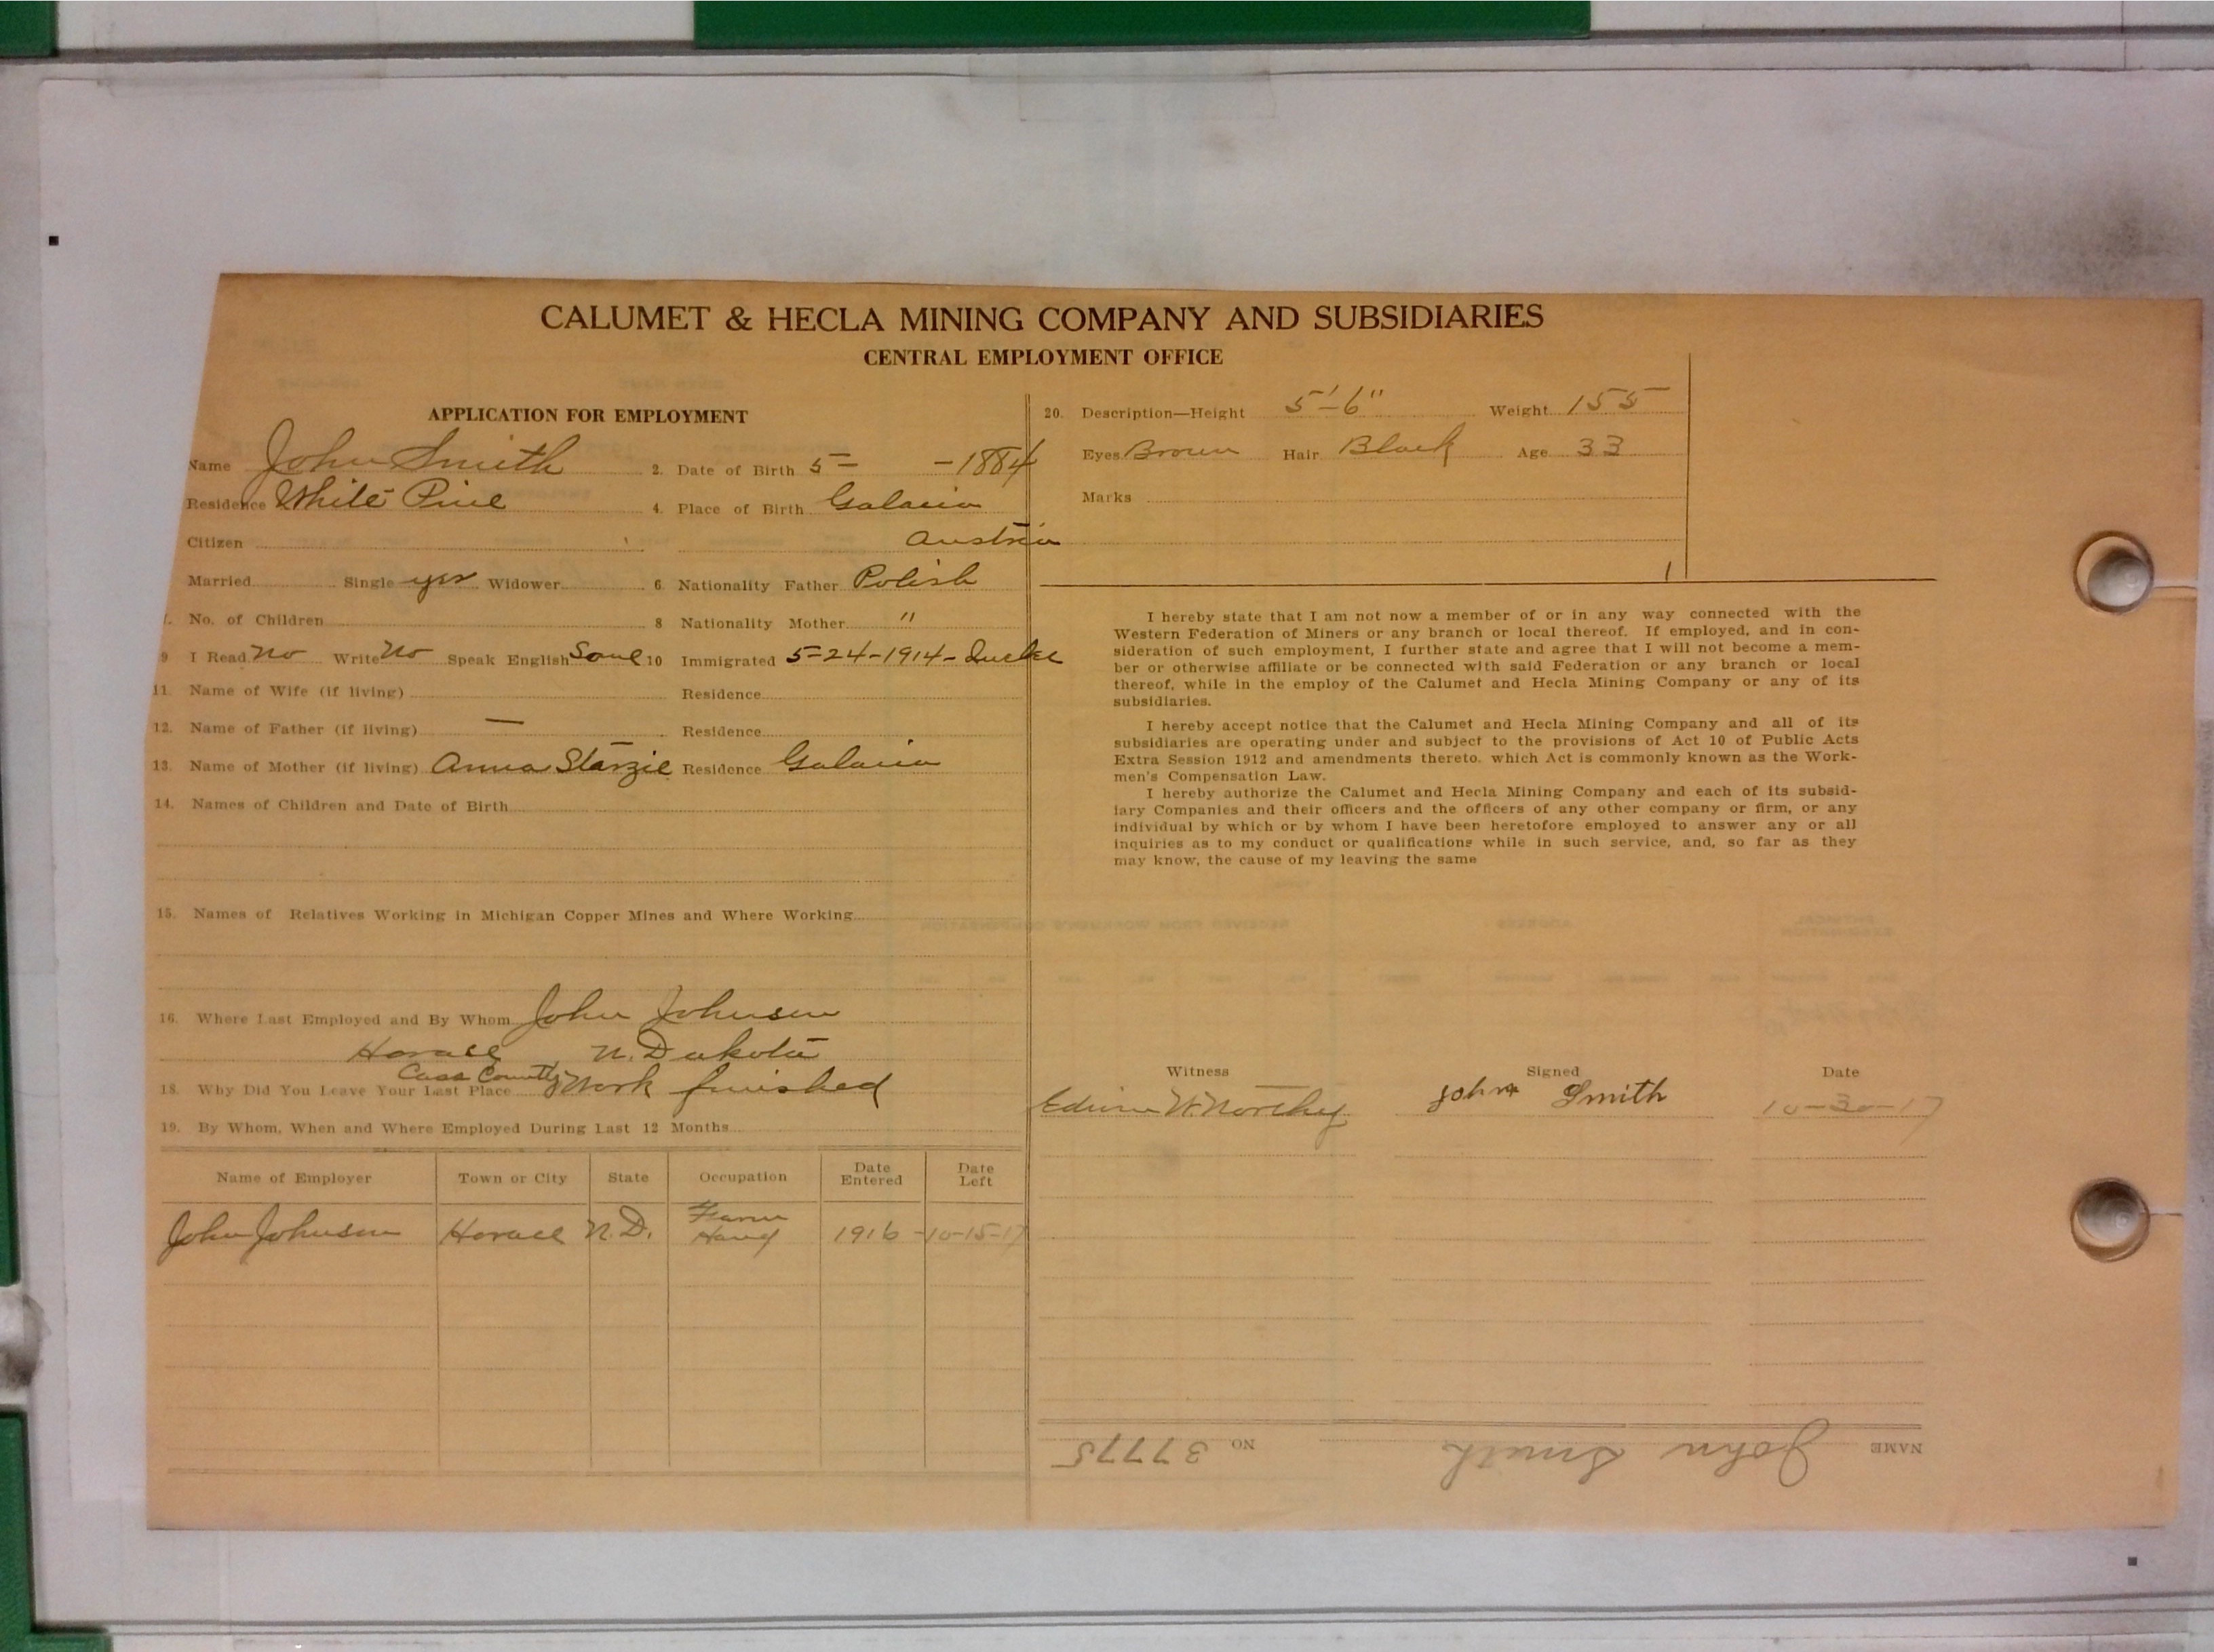 CALUMET & HECLA MINING COMPANY AND SUBSIDIARIES
CENTRAL EMPLOYMENT OFFICE
APPLICATION FOR EMPLOYMENT
Name John Smith 2. Date of Birth 5- -1884
Residence White Pine 4. Place of Birth Galacia
Citizen Austria
Married Single yes Widower 6. Nationality Father Polish
7. No. of Children 8 Nationality Mother "
9 I Read No Write No Speak English Some 10 Immigrated 5-24-1914-
11. Name of Wife (if living) Residence
12. Name of Father (if living) — Residence
13. Name of Mother (if living) Anna Starzic Residence Galacia
14. Names of Children and Date of Birth
15. Names of Relatives Working in Michigan Copper Mines and Where Working
16. Where Last Employed and By Whom John Johnson
Horace N. Dakota
Cass County
18. Why Did You Leave Your Last Place Work finished
19. By Whom, When and Where Employed During Last 12 Months
Name of Employer Town or City State Occupation Date Entered Date Left
John Johnson Horace N.D. Farm Hand 1916 -10-15-17
20. Description—Height 5'-6" Weight 155
Eyes Brown Hair Black Age 33
Marks
I hereby state that I am not now a member of or in any way connected with the
Western Federation of Miners or any branch or local thereof. If employed, and in con-
sideration of such employment, I further state and agree that I will not become a mem-
ber or otherwise affiliate or be connected with said Federation or any branch or local
thereof, while in the employ of the Calumet and Hecla Mining Company or any of its
subsidiaries.
I hereby accept notice that the Calumet and Hecla Mining Company and all of its
subsidiaries are operating under and subject to the provisions of Act 10 of Public Acts
Extra Session 1912 and amendments thereto. which Act is commonly known as the Work-
men's Compensation Law.
I hereby authorize the Calumet and Hecla Mining Company and each of its subsid-
iary Companies and their officers and the officers of any other company or firm, or any
individual by which or by whom I have been heretofore employed to answer any or all
inquiries as to my conduct or qualifications while in such service, and, so far as they
may know, the cause of my leaving the same
Witness Signed Date
Edwin W. Northey John Smith 10-30-17
NAME John Smith NO. 37775